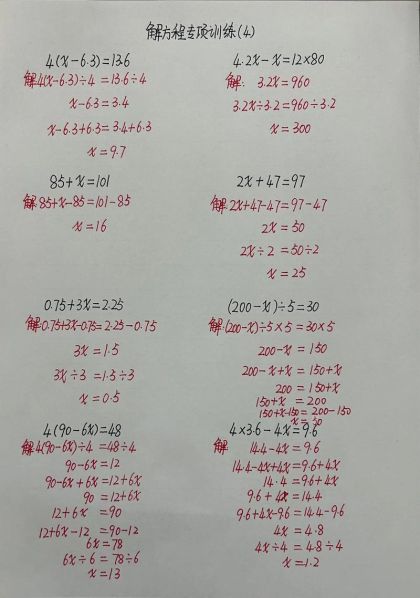 解方程专项训练(4)
4(x-6.3)=13.6
解4(x-6.3)÷4=13.6÷4
x-6.3=3.4
x-6.3+6.3=3.4+6.3
x=9.7
4.2x-x=12×80
解: 3.2x=960
3.2x÷3.2=960÷3.2
x=300
85+x=101
解85+x-85=101-85
x=16
2x+47=97
解2x+47-47=97-47
2x=50
2x÷2=50÷2
x=25
0.75+3x=2.25
解:0.75+3x-0.75=2.25-0.75
3x=1.5
3x÷3=1.5÷3
x=0.5
(200-x)÷5=30
解:(200-x)÷5×5=30×5
200-x=150
200-x+x=150+x
200=150+x
150+x=200
150+x-150=200-150
x=50
4(90-6x)=48
解4(90-6x)÷4=48÷4
90-6x=12
90-6x+6x=12+6x
90=12+6x
12+6x=90
12+6x-12=90-12
6x=78
6x÷6=78÷6
x=13
4×3.6-4x=9.6
解 14.4-4x=9.6
14.4-4x+4x=9.6+4x
14.4=9.6+4x
9.6+4x=14.4
9.6+4x-9.6=14.4-9.6
4x=4.8
4x÷4=4.8÷4
x=1.2